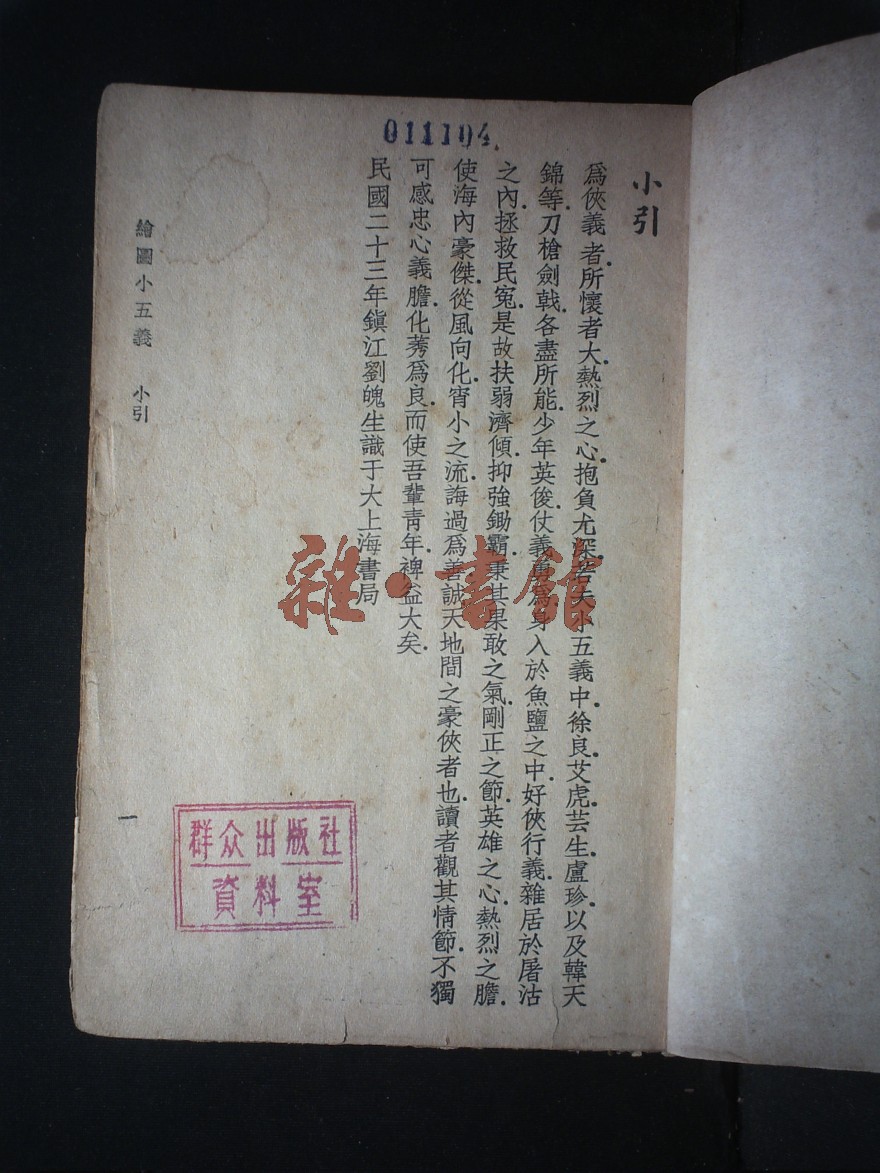 011104
小引
爲俠義者.所懷者大.熱烈之心.抱負尤深.若夫小五義中.徐良.艾虎.芸生.盧珍.以及韓天
錦等.刀槍劍戟.各盡所能.少年英俊.仗義勇爲.身入於魚鹽之中.好俠行義.雜居於屠沽
之內.拯救民冤.是故扶弱濟傾.抑強鋤霸.秉其果敢之氣.剛正之節.英雄之心.熱烈之膽.
使海內豪傑.從風向化.宵小之流.誨過爲善.誠天地間之豪俠者也.讀者觀其情節.不獨
可感忠心義膽.化莠爲良.而使吾輩靑年.裨益大矣.
民國二十三年鎭江劉愧生識于大上海書局
繪圖小五義 小引
一
群众出版社
資料室
雜·書館